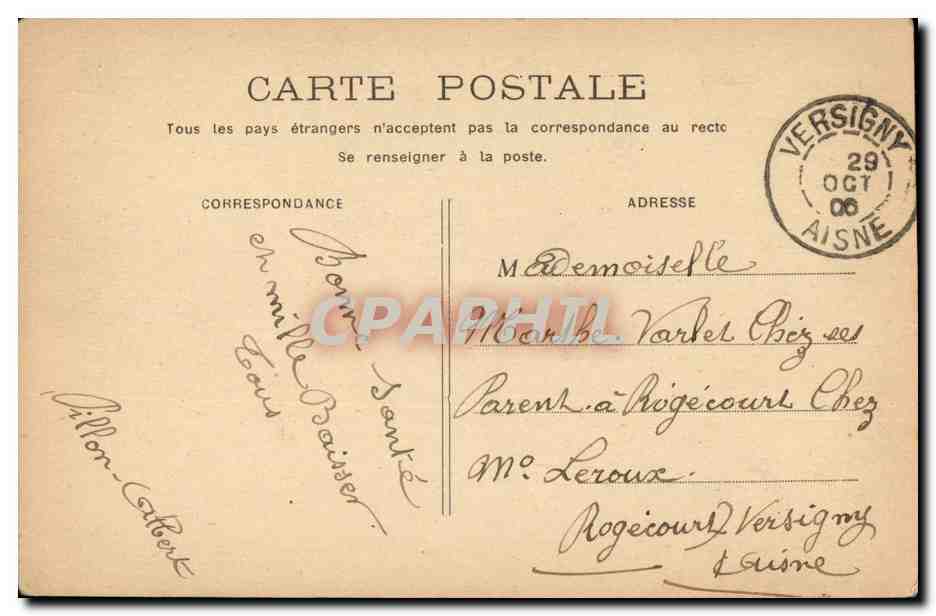 CARTE POSTALE
Tous les pays étrangers n'acceptent pas la correspondance au recto
Se renseigner à la poste.
CORRESPONDANCE
ADRESSE
VERSIGNY
29
OCT
06
AISNE
Bonne Santé
en mille Baisser
Tous
Pillon-Albert
Mademoiselle
Marthe Varlet Chez ses
Parent à Rogécourt Chez
Mo Leroux
Rogécourt Versigny
Aisne
CPAPHIL